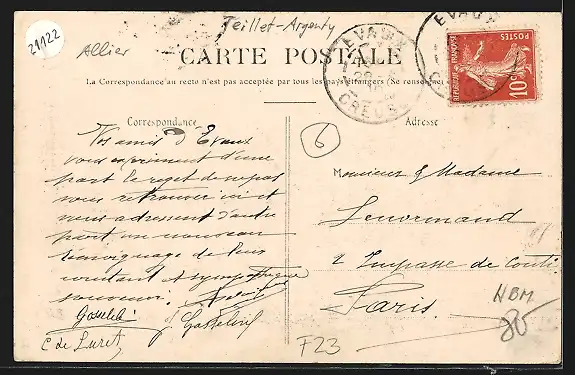 21122
Teillet-Argenty
Allier
CARTE POSTALE
La Correspondance au recto n'est pas acceptée par tous les pays étrangers (Se renseigner
EVAUX
CREUSE
EVAUX
POSTES
REPUBLIQUE FRANÇAISE
10c
Correspondance
Adresse
6
Vos amis d'Evaux
vous expriment d'une
part le regret de ne pas
vous retrouver ici et
vous adressent d'autre
part un nouveau
témoignage de leur
constant et sympathique
souvenir.
C de Luret
Monsieur & Madame
Lenormand
2 Impasse de Conti
Paris.
HBM
80
F23